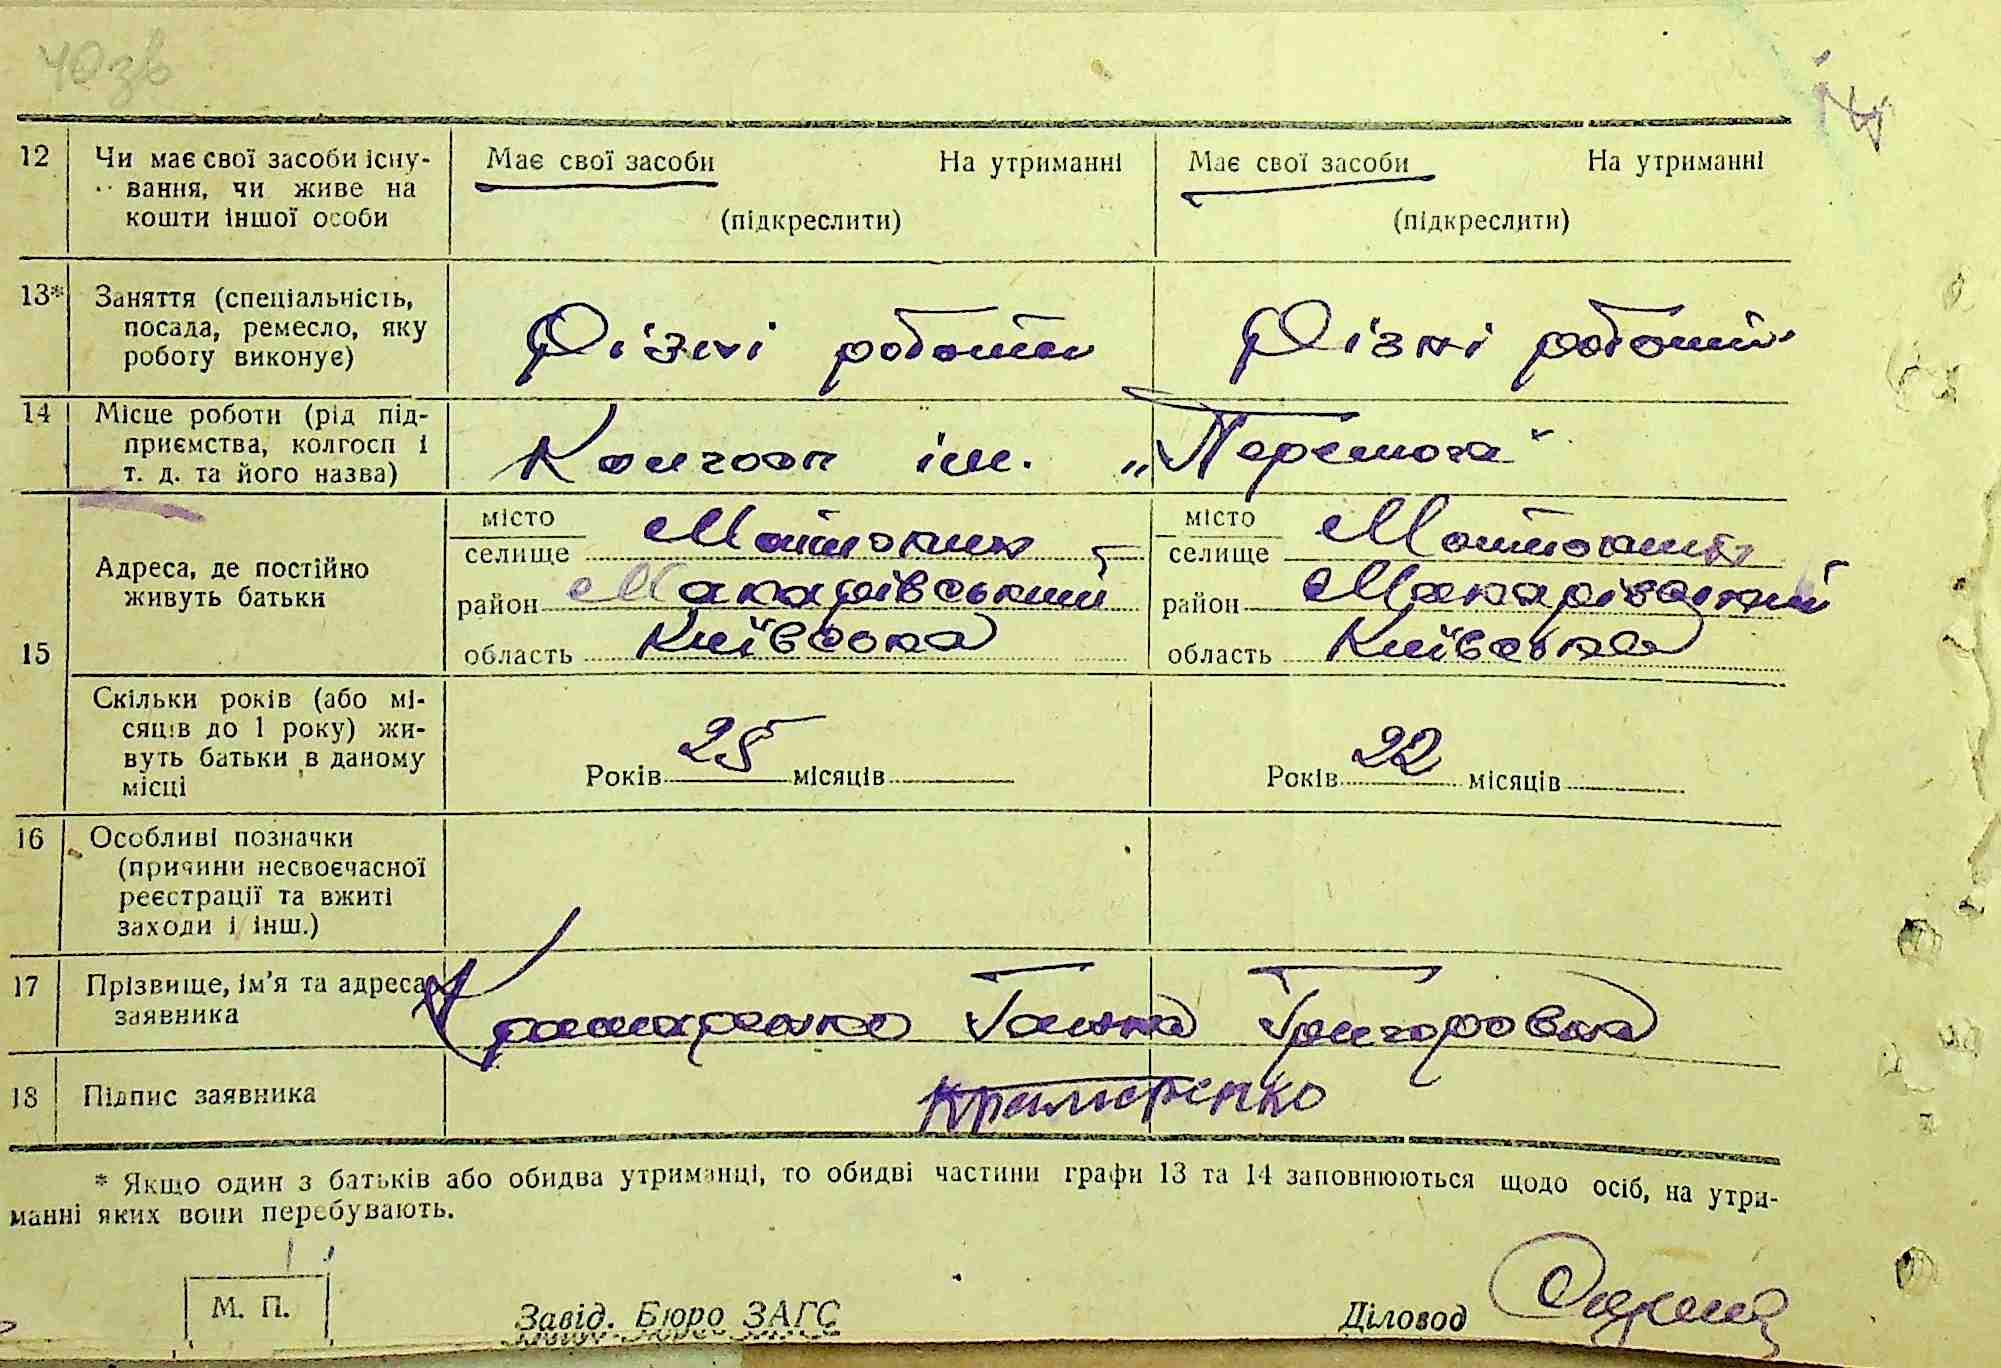 40зв
12 Чи має свої засоби існу- Має свої засоби На утриманні Має свої засоби На утриманні
вання, чи живе на
кошти іншої особи (підкреслити) (підкреслити)
13* Заняття (спеціальність,
посада, ремесло, яку Різні роботи Різні роботи
роботу виконує)
14 Місце роботи (рід під-
приємства, колгосп і Колгосп ім. „Перемога“
т. д. та його назва)
15 Адреса, де постійно живуть батьки
місто
селище Мотижин
район Макарівський
область Київська
місто
селище Мотижин
район Макарівський
область Київська
Скільки років (або мі-
сяців до 1 року) жи-
вуть батьки в даному
місці
Років 25 місяців
Років 22 місяців
16 Особливі позначки
(причини несвоєчасної
реєстрації та вжиті
заходи і інш.)
17 Прізвище, ім'я та адреса
заявника Крамаренко Ганна Григоровна
18 Підпис заявника Крамаренко
* Якщо один з батьків або обидва утриманці, то обидві частини графи 13 та 14 заповнюються щодо осіб, на утри-
манні яких вони перебувають.
М. П. Завід. Бюро ЗАГС Діловод